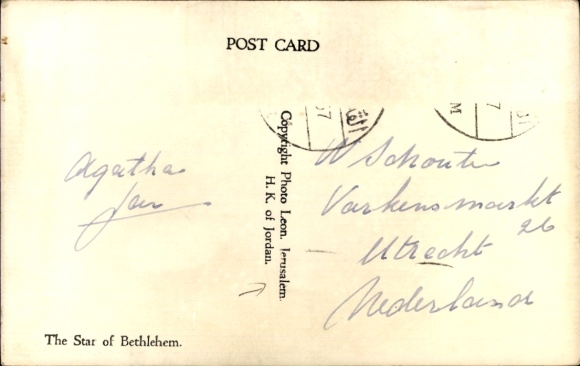 POST CARD
Agatha
Jan
Copyright Photo Leon. Jerusalem.
H. K. of Jordan.
W Schouten
Varkensmarkt
26
Utrecht
Nederland
The Star of Bethlehem.